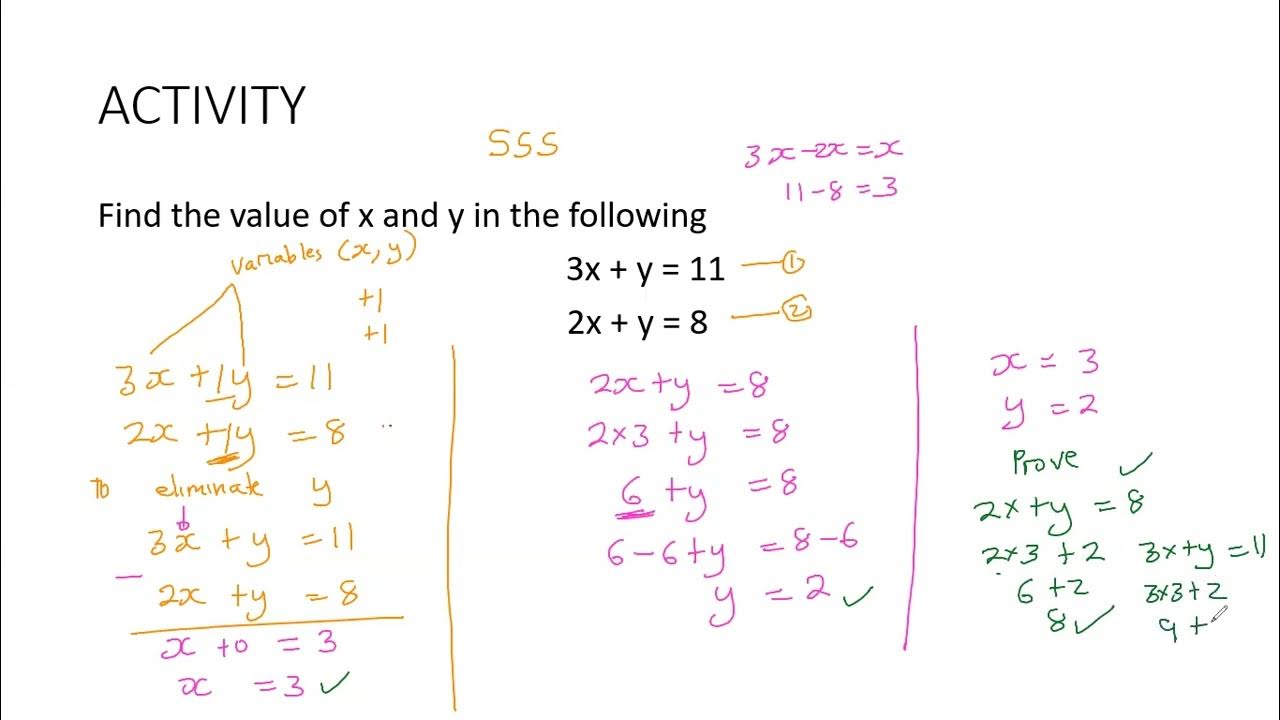 ACTIVITY
SSS
3x - 2x = x
11 - 8 = 3
Find the value of x and y in the following
variables (x, y)
3x + y = 11 ①
2x + y = 8 ②
+1
+1
3x + 1y = 11
2x + 1y = 8
To eliminate y
3x + y = 11
− 2x + y = 8
x + 0 = 3
x = 3 ✓
2x + y = 8
2×3 + y = 8
6 + y = 8
6 - 6 + y = 8 - 6
y = 2 ✓
x = 3
y = 2
Prove ✓
2x + y = 8
2×3 + 2
6 + 2
8 ✓
3x + y = 11
3×3 + 2
9 +